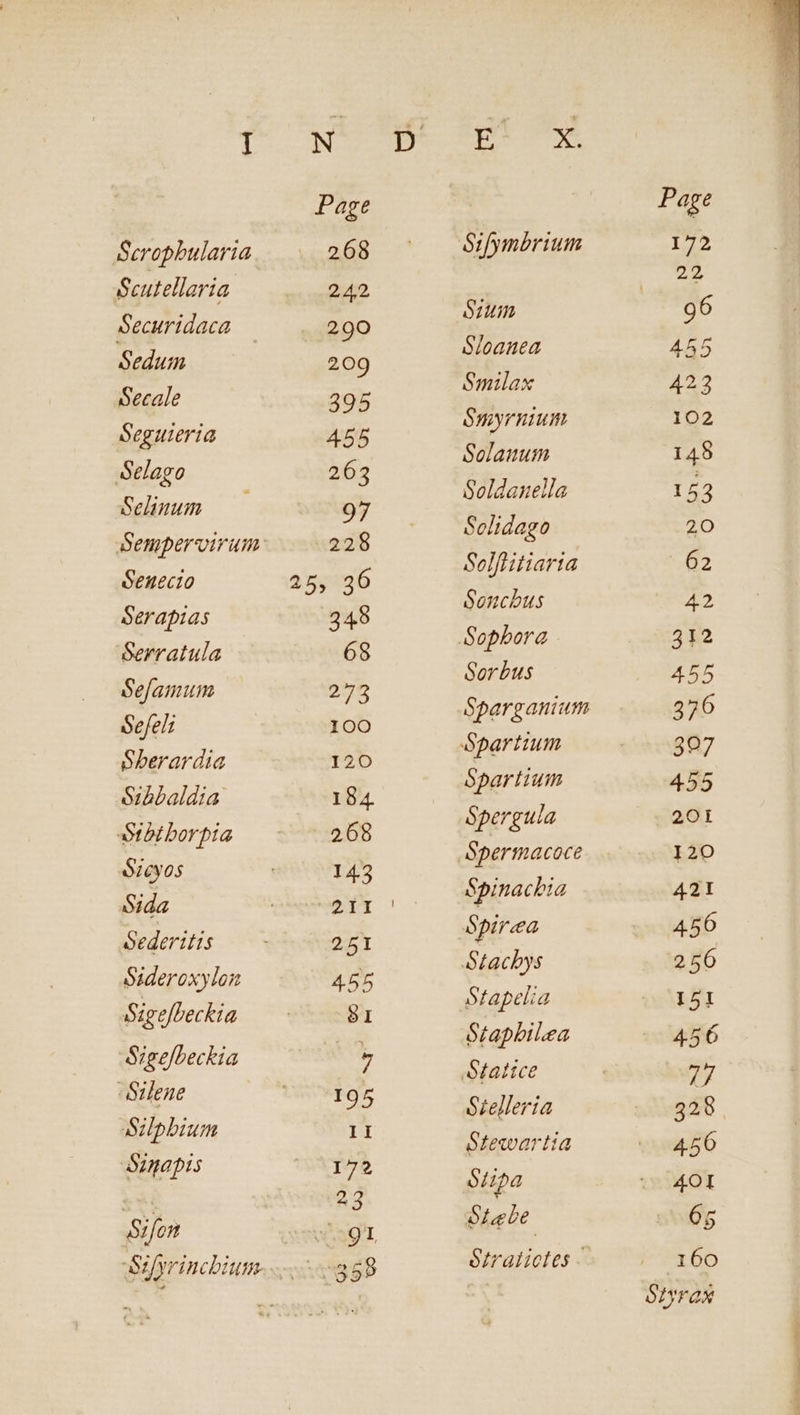 I N D E X.
Page
Scrophularia 268
Scutellaria 242
Securidaca 290
Sedum 209
Secale 395
Seguieria 455
Selago 263
Selinum 97
Sempervirum 228
Senecio 25, 36
Serapias 348
Serratula 68
Seſamum 273
Seſeli 100
Sherardia 120
Sibbaldia 184
Sibthorpia 268
Sicyos 143
Sida 211
Sederitis 251
Sideroxylon 455
Sigeſbeckia 81
Sigeſbeckia 7
Silene 195
Silphium 11
Sinapis 172
23
Siſon 91
Siſyrinchium 358
Page
Siſymbrium 172
22
Sium 96
Sloanea 455
Smilax 423
Smyrnium 102
Solanum 148
Soldanella 153
Solidago 20
Solſtitiaria 62
Sonchus 42
Sophora 312
Sorbus 455
Sparganium 376
Spartium 307
Spartium 455
Spergula 201
Spermacoce 120
Spinachia 421
Spiræa 456
Stachys 256
Stapelia 151
Staphilæa 456
Statice 77
Stelleria 328
Stewartia 456
Stipa 401
Stæbe 65
Stratiotes 160
Styrax